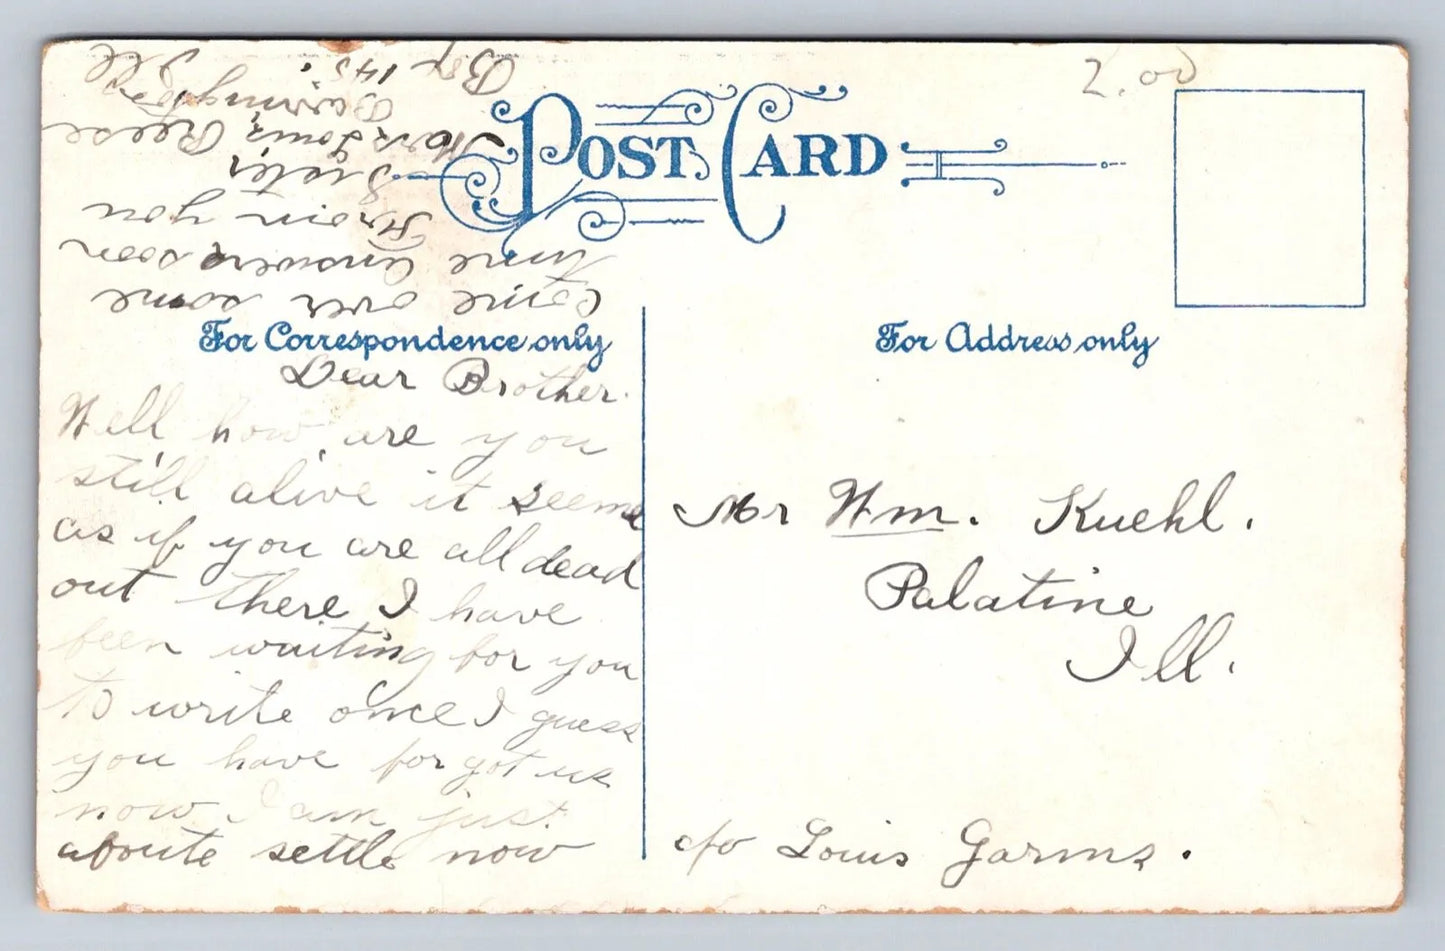 2.00
POST CARD
For Correspondence only
Dear Brother.
Well how are you
still alive it seems
as if you are all dead
out there I have
been waiting for you
to write once I guess
you have for got us
now I am just
aboute settle now
Come over some
time answere soon
From you
Sister
Mrs Louis Reese
Barrington
Box 145. Ill
For Address only
Mr Wm. Kuehl.
Palatine
Ill.
c/o Louis Garms.